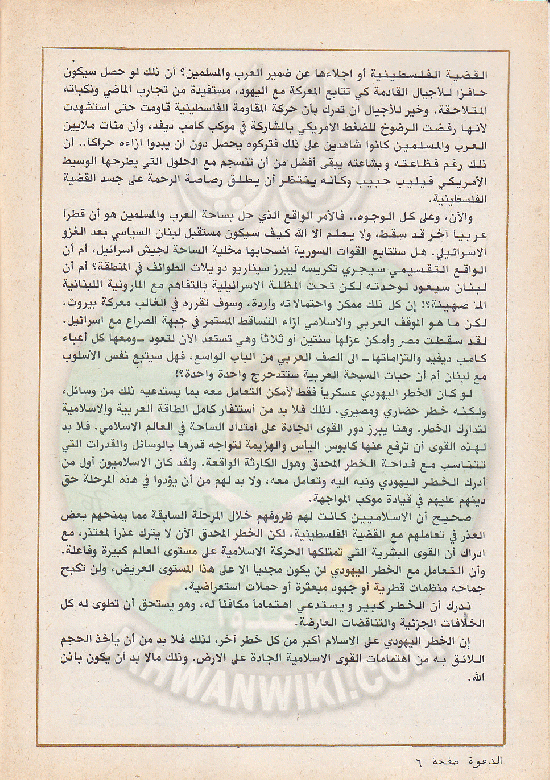 القضية الفلسطينية أو اجلاءها عن ضمير العرب والمسلمين؟ ان ذلك لو حصل سيكون
حافزا للأجيال القادمة كي تتابع المعركة مع اليهود، مستفيدة من تجارب الماضي ونكباته
المتلاحقة. وخير للأجيال أن تدرك بأن حركة المقاومة الفلسطينية قاومت حتى استشهدت
لأنها رفضت الرضوخ للضغط الامريكي بالمشاركة في موكب كامب ديفد، وأن مئات ملايين
العرب والمسلمين كانوا شاهدين على ذلك فتركوه يحصل دون أن يبدوا ازاءه حراكا.. ان
ذلك رغم فظاعته وبشاعته يبقى أفضل من أن تنسجم مع الحلول التي يطرحها الوسيط
الأمريكي فيليب حبيب وكأنه ينتظر أن يطلق رصاصة الرحمة على جسد القضية
الفلسطينية.
والآن، وعلى كل الوجوه.. فالأمر الواقع الذي حل بساحة العرب والمسلمين هو أن قطرا
عربيا آخر قد سقط، ولا يعلم الا الله كيف سيكون مستقبل لبنان السياسي بعد الغزو
الاسرائيلي. هل ستتابع القوات السورية انسحابها مخلية الساحة لجيش اسرائيل، أم أن
الواقع التقسيمي سيجري تكريسه ليبرز سيناريو دويلات الطوائف في المنطقة؟ أم أن
لبنان سيعود لوحدته لكن تحت المظلة الاسرائيلية بالتفاهم مع المارونية اللبنانية
المتصهينة؟! إن كل ذلك ممكن واحتمالاته واردة، وسوف تقرره في الغالب معركة بيروت.
لكن ما هو الموقف العربي والاسلامي ازاء التساقط المستمر في جبهة الصراع مع اسرائيل.
لقد سقطت مصر وأمكن عزلها سنتين أو ثلاثا وهي تستعد الآن لتعود -ومعها كل أعباء
كامب ديفيد والتزاماتها- الى الصف العربي من الباب الواسع، فهل سيتبع نفس الأسلوب
مع لبنان أم أن حبات السبحة العربية ستتدحرج واحدة واحدة؟!
لو كان الخطر اليهودي عسكرياً فقط لأمكن التعامل معه بما يستدعيه ذلك من وسائل،
ولكنه خطر حضاري ومصيري، لذلك فلا بد من استنفار كامل الطاقة العربية والاسلامية
لتدارك الخطر. وهنا يبرز دور القوى الجادة على امتداد الساحة في العالم الاسلامي. فلا بد
لهذه القوى أن ترفع عنها كابوس اليأس والهزيمة لتواجه قدرها بالوسائل والقدرات التي
تتناسب مع فداحة الخطر المحدق وهول الكارثة الواقعة. ولقد كان الاسلاميون أول من
أدرك الخطر اليهودي ونبه اليه وتعامل معه، ولا بد لهم من أن يؤدوا في هذه المرحلة حق
دينهم عليهم في قيادة موكب المواجهة.
صحيح أن الاسلاميين كانت لهم ظروفهم خلال المرحلة السابقة مما يمنحهم بعض
العذر في تعاملهم مع القضية الفلسطينية، لكن الخطر المحدق الآن لا يترك عذراً لمعتذر، مع
ادراك أن القوى البشرية التي تمتلكها الحركة الاسلامية على مستوى العالم كبيرة وفاعلة.
وأن التعامل مع الخطر اليهودي لن يكون مجديا الا على هذا المستوى العريض، ولن تكبح
جماحه منظمات قطرية أو جهود مبعثرة أو حملات استعراضية.
ندرك أن الخطر كبير ويستدعي اهتماماً مكافئاً له، وهو يستحق أن تطوى له كل
الخلافات الجزئية والتناقضات العارضة.
إن الخطر اليهودي على الاسلام أكبر من كل خطر آخر، لذلك فلا بد من أن يأخذ الحجم
اللائق به من اهتمامات القوى الاسلامية الجادة على الارض. وذلك مالا بد أن يكون بإذن
الله.
IKHWANWIKI.COM
الدعوة صفحه ٦